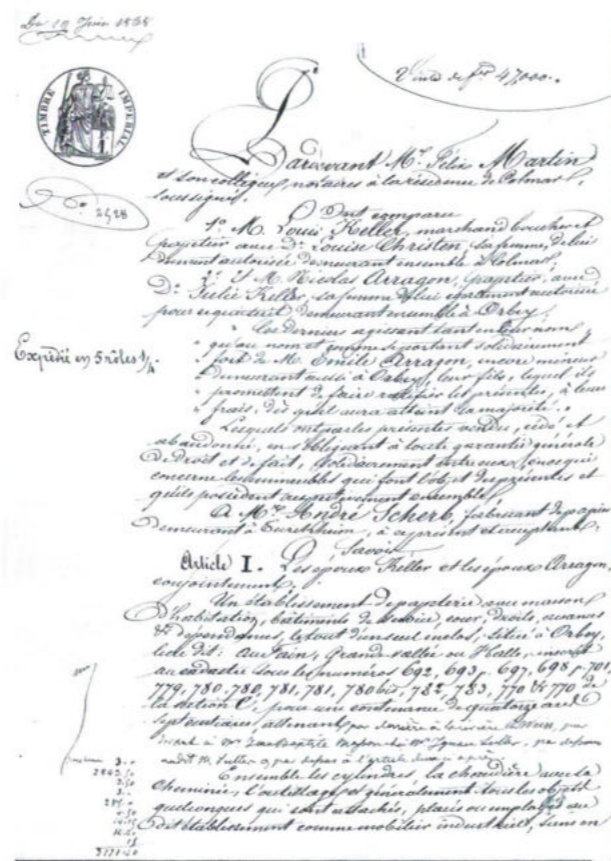 Du 10 Juin 1868
Vente de fcs 47,000.-
TIMBRE IMPERIAL
No. 2428
Pardevant Me. Félix Martin
et son collègue, notaires à la résidence de Colmar,
soussignés.
Ont comparu
1o. M. Louis Keller, marchand boucher et
papetier avec De. Louise Christen, sa femme, de lui
dument autorisée demeurant ensemble à Colmar,
2o. Et M. Nicolas Arragon, papetier, avec
De. Julie Keller, sa femme de lui également autorisée
pour ce qui suit demeurant ensemble à Orbey,
" Ces derniers agissant tant en leur nom
" qu'au nom et comme se portant solidairement
" fort de M. Emile Arragon, encore mineur
" demeurant aussi à Orbey, leur fils, lequel ils
" promettent de faire ratifier les présentes, à leurs
" frais, dès qu'il aura atteint sa majorité. "
Expédié en 5 rôles 1/4.
Lesquels ont par les présentes vendu, cédé et
abandonné, en s'obligeant à toute garantie générale
de droit et de fait, solidairement entre eux, en ce qui
concerne les immeubles qui font l'objet des présentes et
qu'ils possèdent ensemble,
A Mr. André Scherb, fabricant de papier
demeurant à Turckheim, à ce présent et acceptant,
Savoir
Article I. Les époux Keller et les époux Arragon,
conjointement,
Un établissement de papeterie avec maison
d'habitation, bâtiments de service, cour, droits, aisances
& dépendances, le tout d'un seul enclos, situé à Orbey,
lieu dit: Grande vallée ou inscrit
au cadastre sous les numéros 692, 693 p. 697, 698 p. 701,
779, 780, 780, 781, 781, 780 bis, 782, 783, 770 & 770 de
la section C, pour une contenance de quatorze ares
sept centiares, attenant, par derrière à la rivière par
devant à Mr Jean Baptiste
par dessus à l'article deux ci après
Ensemble les cylindres, la chaudière avec la
cheminée, l'outillage et généralement tous les objets
quelconques qui sont attachés, placés ou employés au
dit établissement comme mobilier industriel, sans en